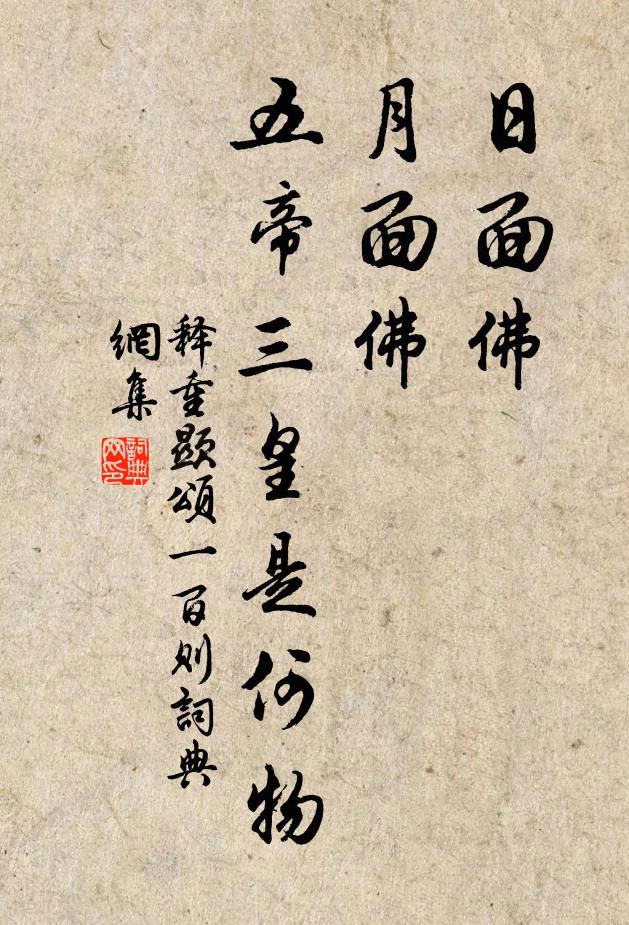 日面佛
月面佛
五帝三皇是何物
释重顯頌一百则詞典
網集
詞典
网印